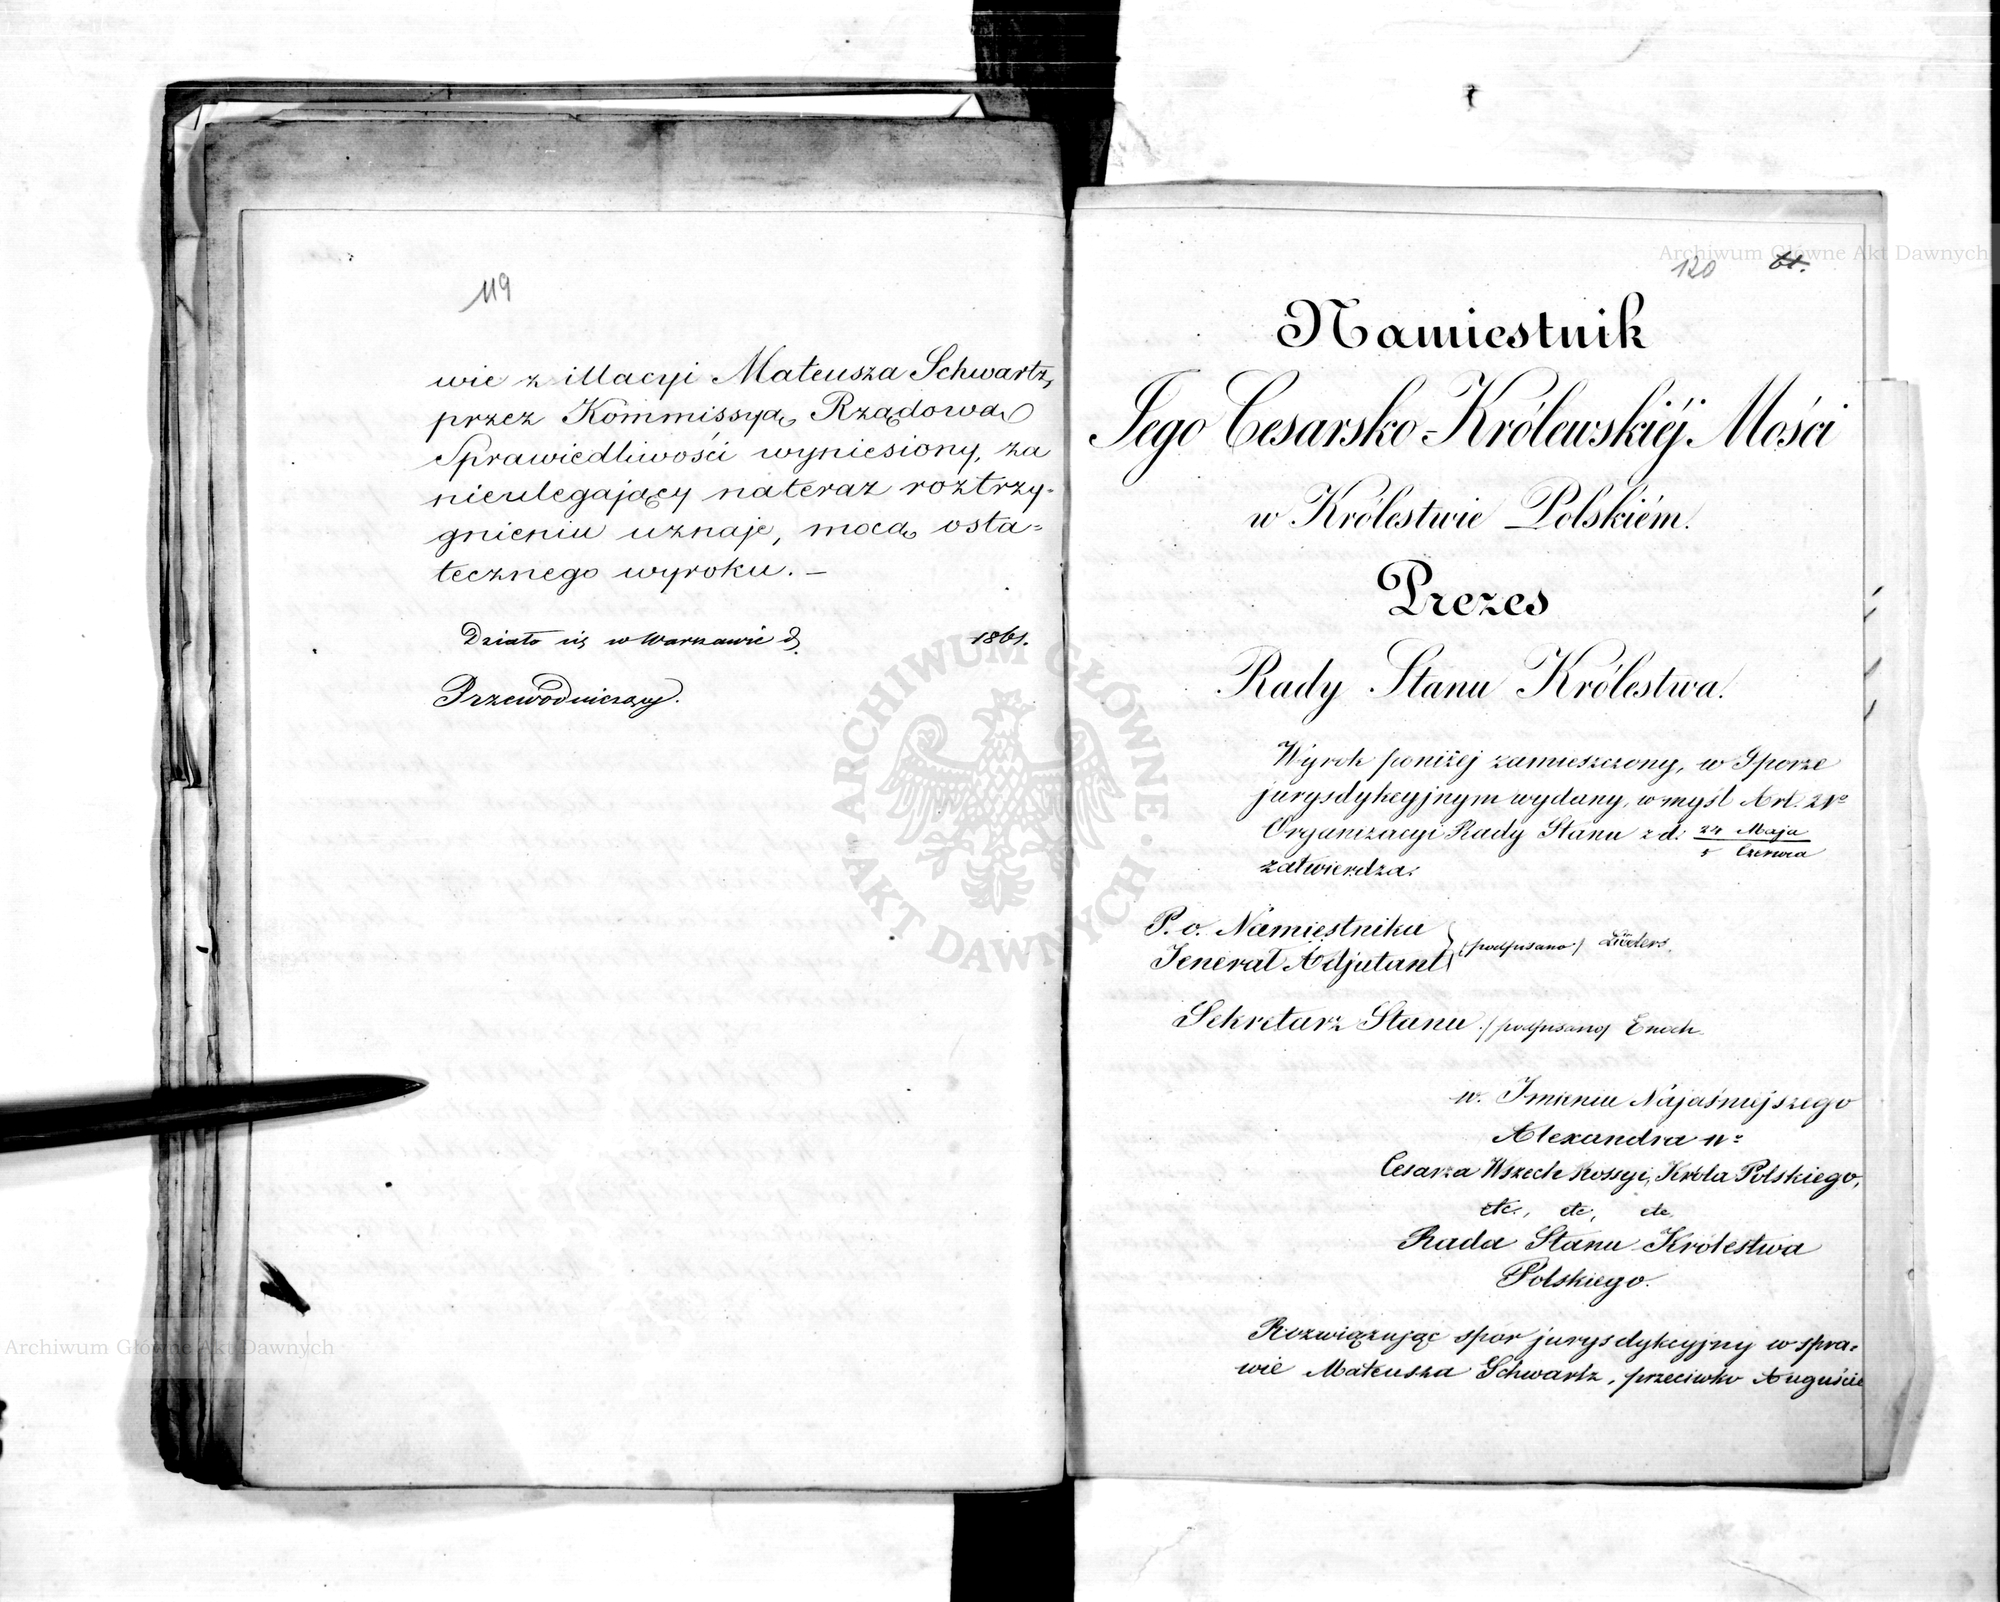 119
wie z illacyi Mateusza Schwartz,
przez Kommissyą Rządową
Sprawiedliwości wyniesiony, za
nieulegający nateraz roztrzy-
gnieniu uznaje, mocą osta-
tecznego wyroku. –
Działo się w Warszawie d. 1861.
Przewodniczący.
Archiwum Główne Akt Dawnych
120 61.
Namiestnik
Jego Cesarsko-Królewskiéj Mości
w Królestwie Polskiém.
Prezes
Rady Stanu Królestwa.
Wyrok poniżej zamieszczony, w Sporze
jurysdykcyjnym wydany, w myśl Art. 21º
Organizacyi Rady Stanu z d: 24 Maja
5 Czerwca
zatwierdza.
P. o. Namiestnika
Jenerał Adjutant (podpisano) Lüders.
Sekretarz Stanu (podpisano) Enoch.
w Imieniu Najaśniejszego
Alexandra IIº
Cesarza Wszech Rossyi, Króla Polskiego,
etc., etc, etc.
Rada Stanu Królestwa
Polskiego.
Rozwiązując spór jurysdykcyjny w spra-
wie Mateusza Schwartz, przeciwko Auguście
ARCHIWUM GŁÓWNE AKT DAWNYCH
Archiwum Główne Akt Dawnych